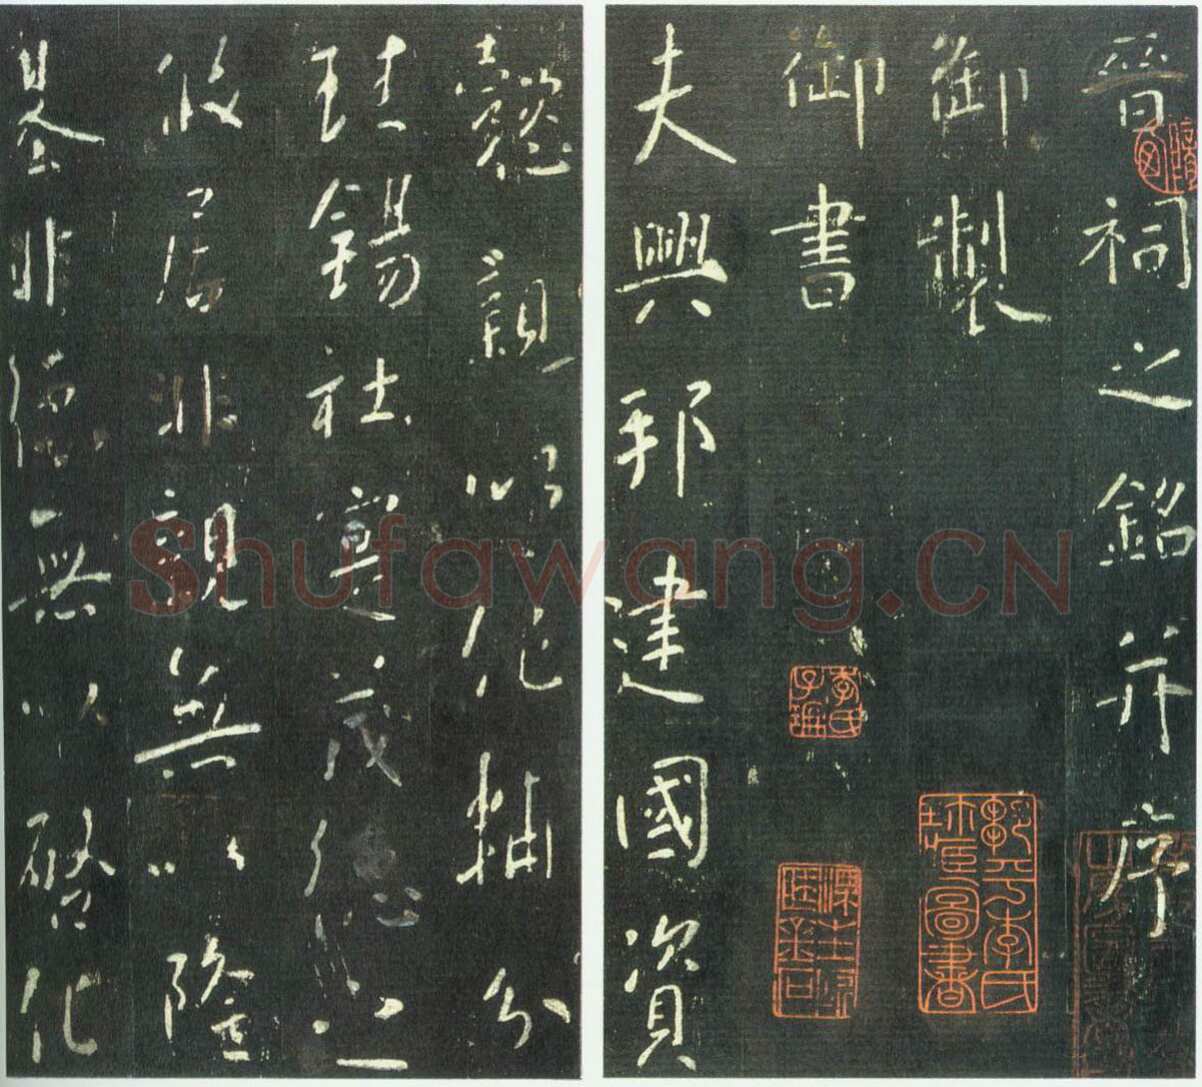 晉祠之銘并序
御製
御書
夫興邦建國資
懿親以作輔分
珪錫社寔茂德之
攸居非親無以隆
基非德無以啓化
Shufawang.CN